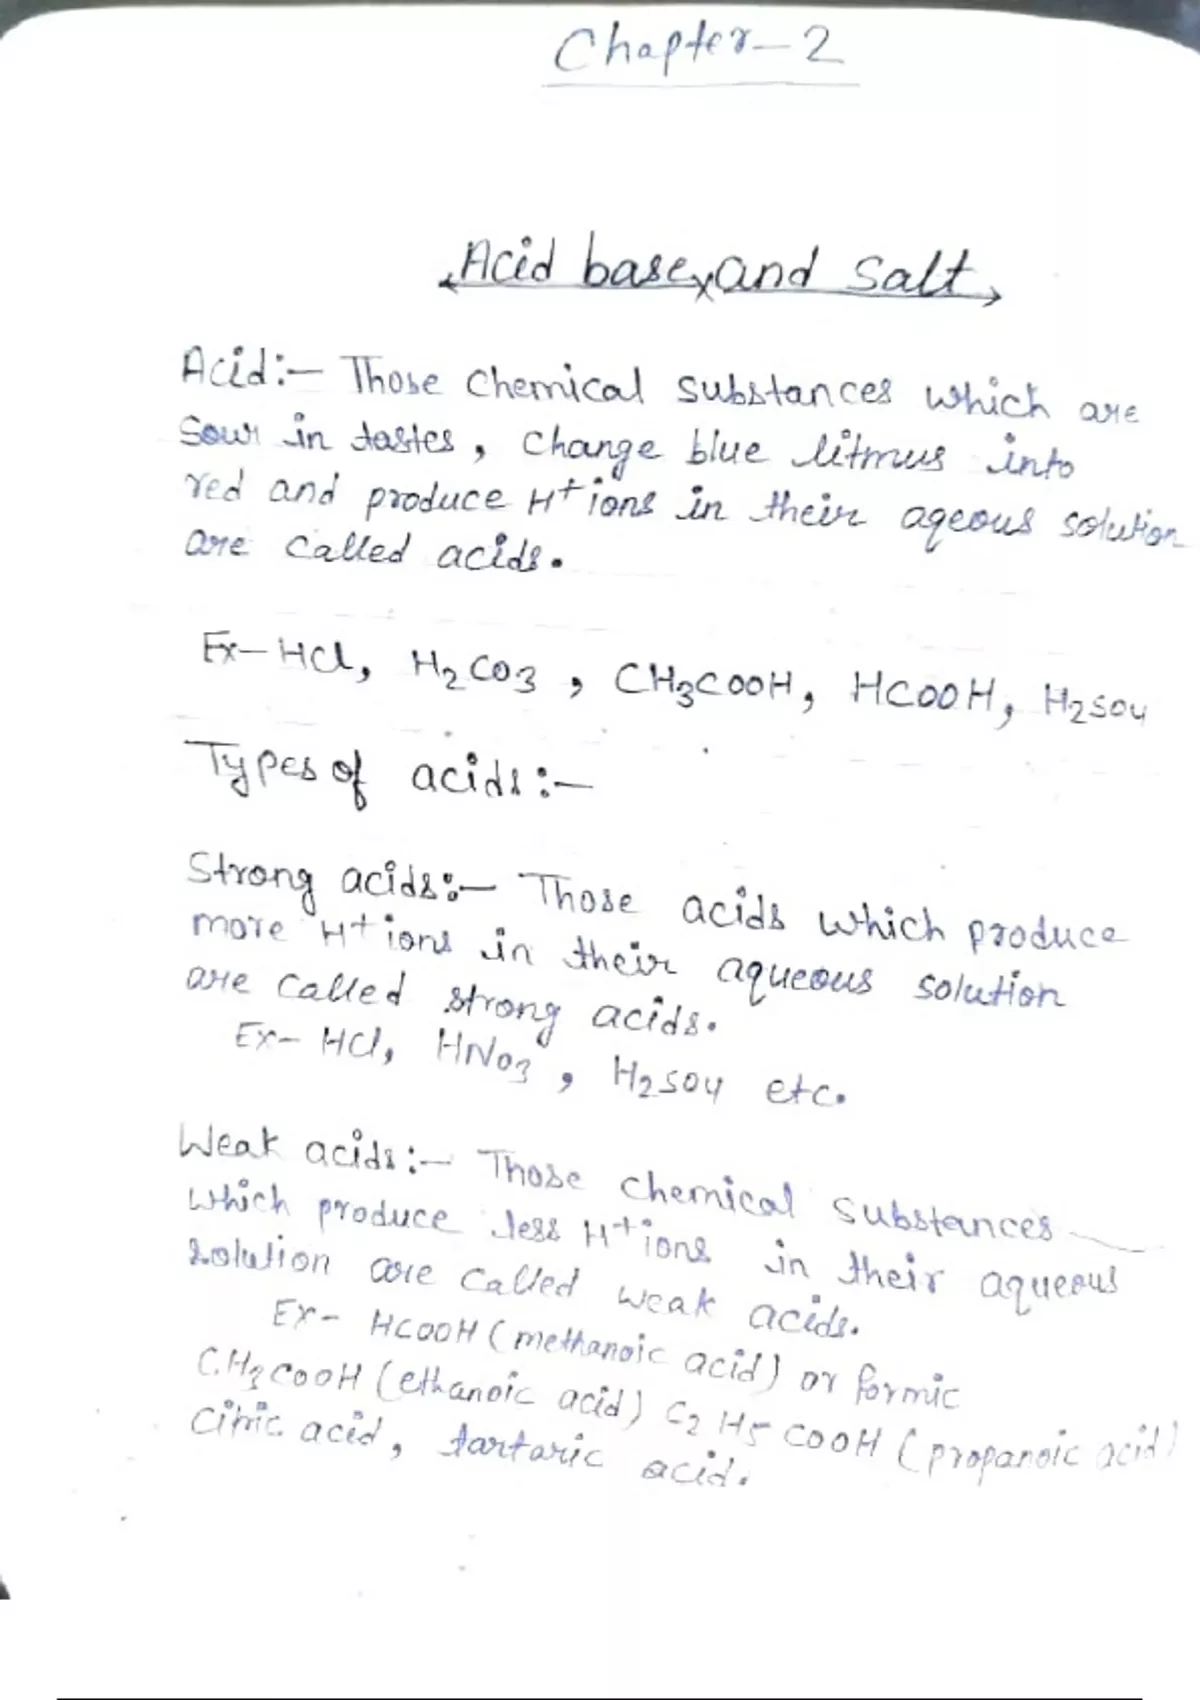 Chapter-2
Acid base, and salt
Acid:- Those chemical substances which are
sour in tastes, change blue litmus into
red and produce H+ ions in their aqeous solution
are called acids.
Ex- HCl, H2CO3, CH3COOH, HCOOH, H2SO4
Types of acids:-
Strong acids:- Those acids which produce
more H+ ions in their aqueous solution
are called strong acids.
Ex- HCl, HNO3, H2SO4 etc.
Weak acids:- Those chemical substances
which produce less H+ ions in their aqueous
solution are called weak acids.
Ex- HCOOH (methanoic acid) or formic
CH3COOH (ethanoic acid) C2H5COOH (propanoic acid)
Citric acid, tartaric acid.